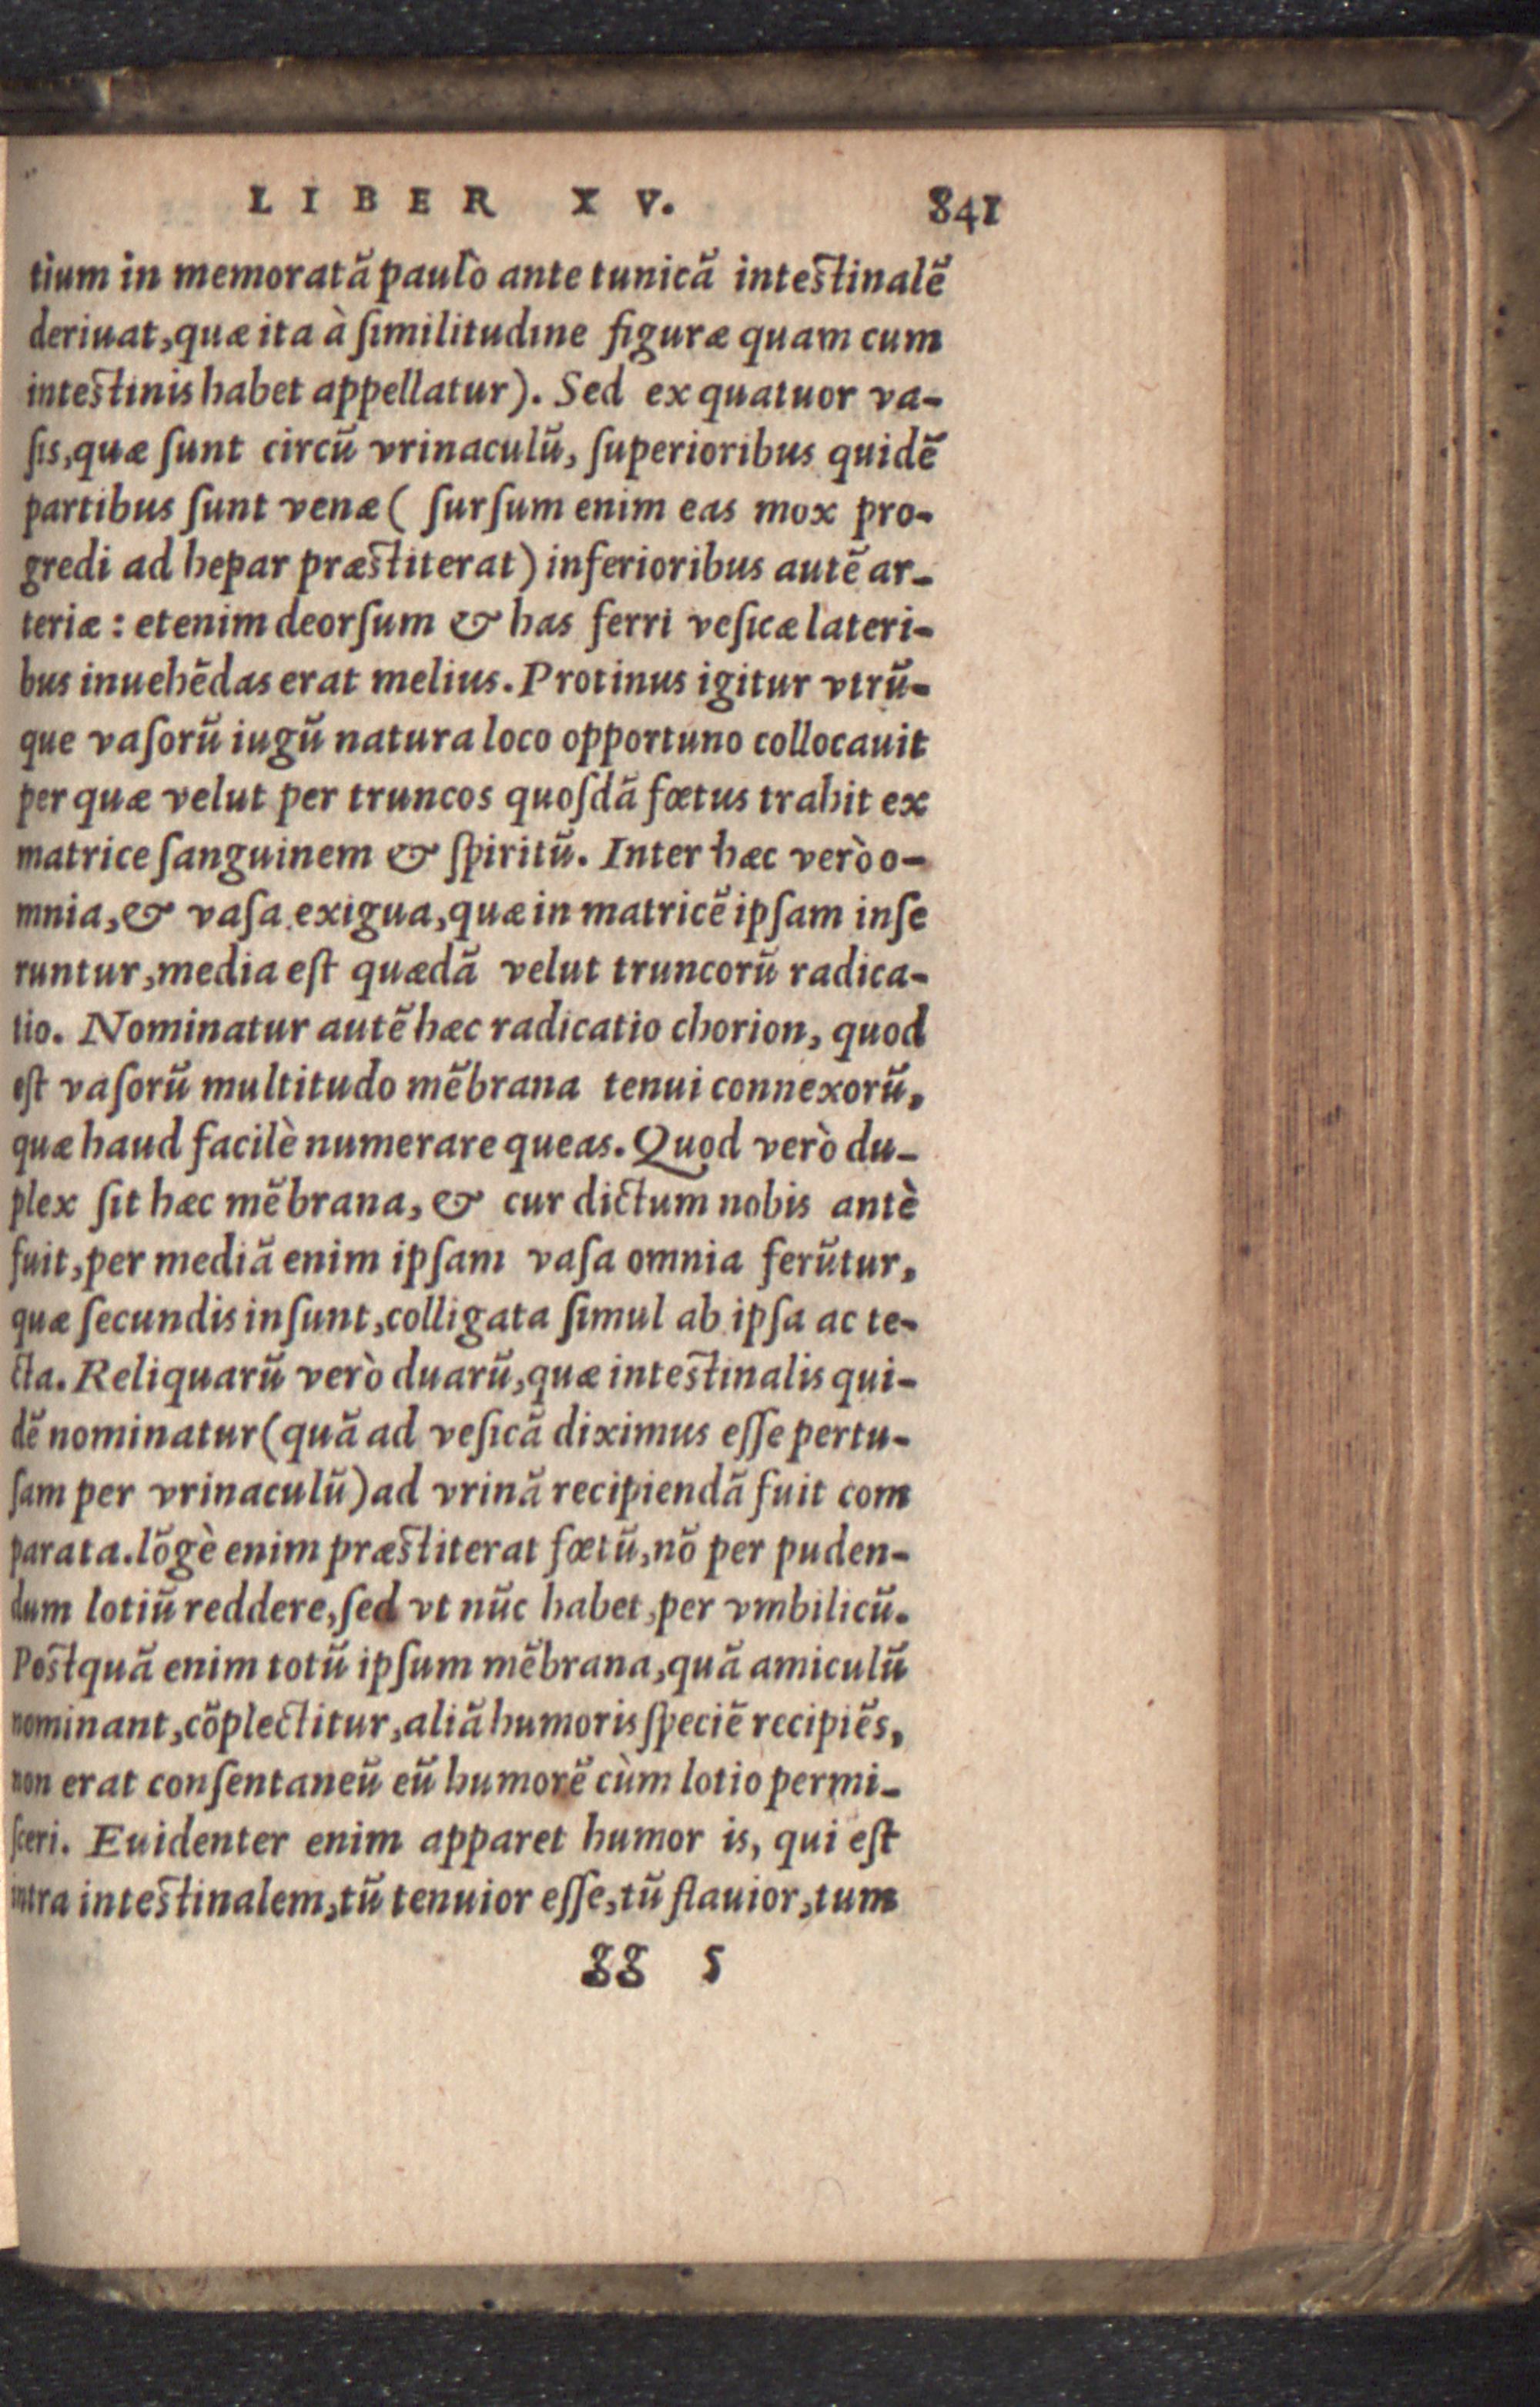 LIBER XV. 841
tium in memoratā paulò ante tunicā intestinalē
deriuat, quæ ita à ſimilitudine figuræ quam cum
intestinis habet appellatur). Sed ex quatuor va-
ſis, quæ ſunt circū vrinaculū, ſuperioribus quidē
partibus ſunt venæ ( ſurſum enim eas mox pro-
gredi ad hepar præstiterat) inferioribus autē ar-
teriæ: etenim deorſum & has ferri veſicæ lateri-
bus inuehēdas erat melius. Protinus igitur vtrū-
que vaſorū iugū natura loco opportuno collocauit
per quæ velut per truncos quoſdā fœtus trahit ex
matrice ſanguinem & ſpiritū. Inter hæc verò o-
mnia, & vaſa exigua, quæ in matricē ipſam inſe
runtur, media eſt quædā velut truncorū radica-
tio. Nominatur autē hæc radicatio chorion, quod
eſt vaſorū multitudo mēbrana tenui connexorū,
quæ haud facilè numerare queas. Quod verò du-
plex ſit hæc mēbrana, & cur dictum nobis antè
fuit, per mediā enim ipſam vaſa omnia ferūtur,
quæ ſecundis inſunt, colligata ſimul ab ipſa ac te-
cta. Reliquarū verò duarū, quæ intestinalis qui-
dē nominatur (quā ad veſicā diximus eſſe pertu-
ſam per vrinaculū) ad vrinā recipiendā fuit com
parata. lōgè enim præstiterat fœtū, nō per puden-
dum lotiū reddere, ſed vt nūc habet, per vmbilicū.
Postquā enim totū ipſum mēbrana, quā amiculū
nominant, cōplectitur, aliā humoris ſpeciē recipiēs,
non erat conſentaneū eū humorē cùm lotio permi-
ſceri. Euidenter enim apparet humor is, qui eſt
intra intestinalem, tū tenuior eſſe, tū flauior, tum
gg 5